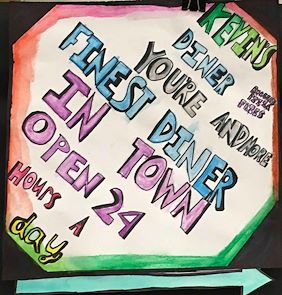 KEVINS
DINER
YOU'RE
FINEST DINER
IN TOWN
OPEN 24
HOURS A
day
AND MORE